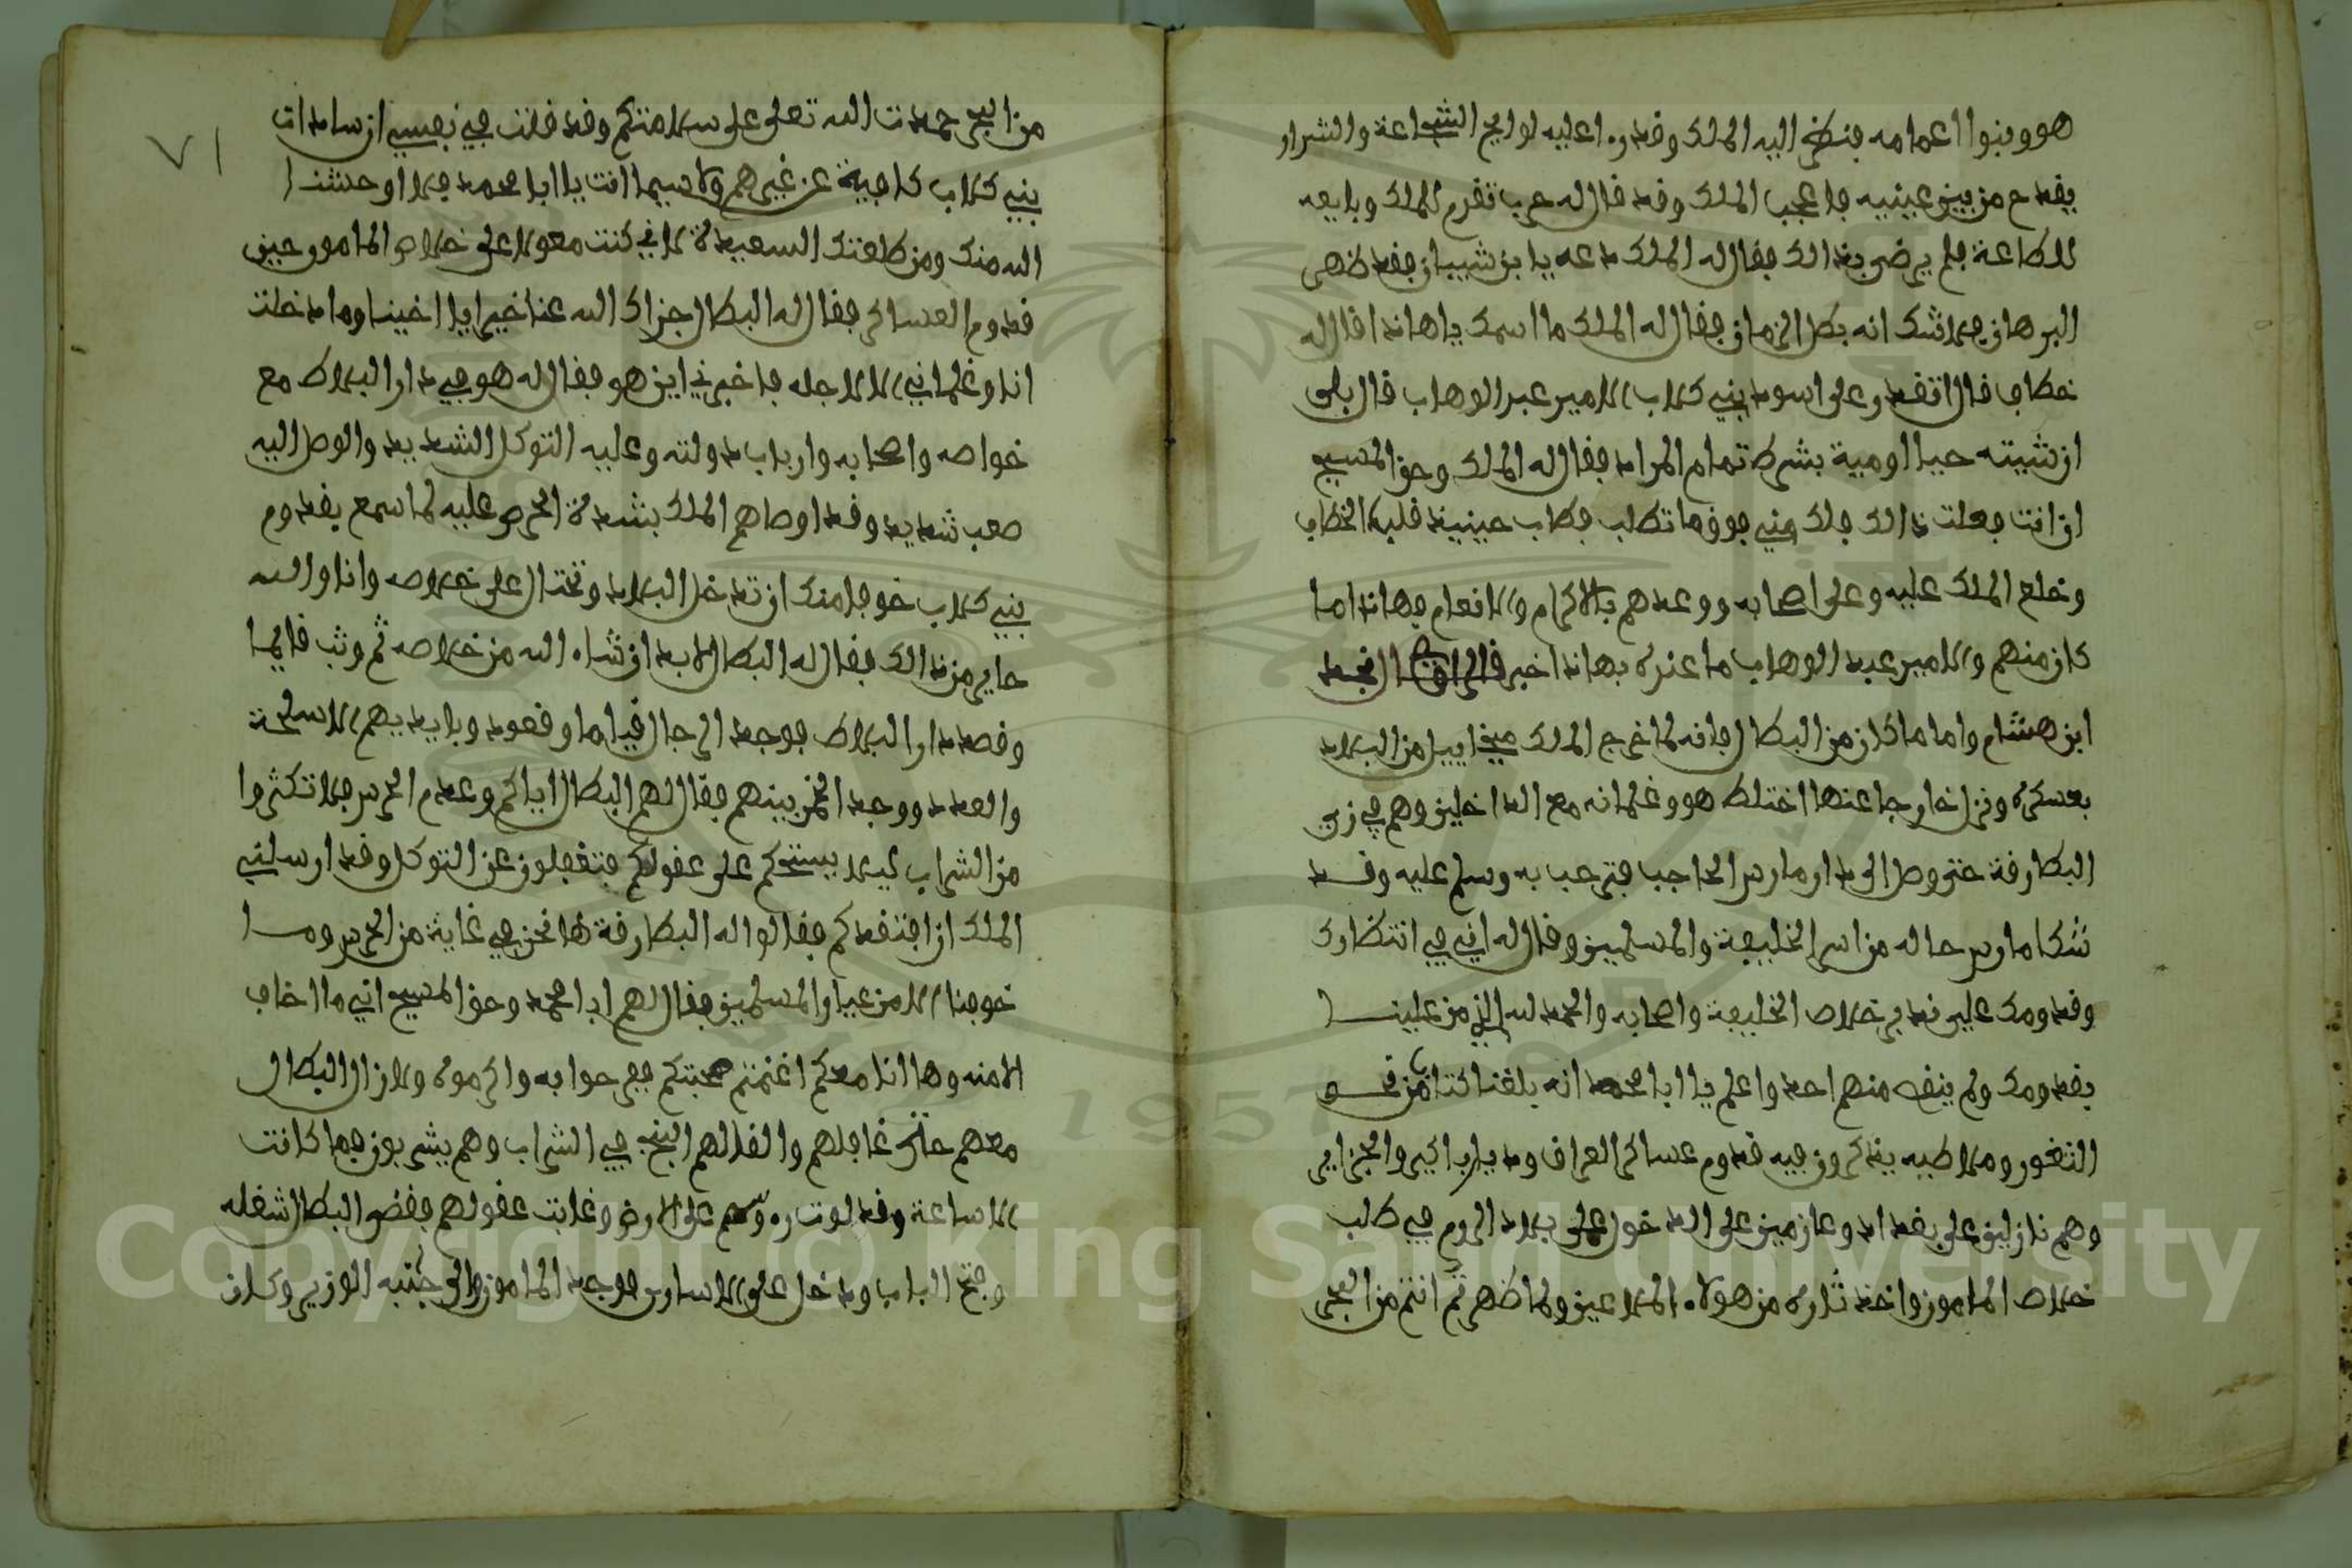 هو وبنوا اعمامه فنظر اليه الملك وقد راا عليه لوايح الشجاعة والشرار
يقدح من بين عينيه فاعجب الملك وقد قال له حرب تقدم للملك وبايعه
للطاعة فلم يرض بذالك فقال له الملك دعه يا بن شيبان فقد ظهر
البرهان فلا شك انه بطل الزمان فقال له الملك ما اسمك ياهاذا قال له
خطاف قال اتقدر على اسود بني كلاب الامير عبد الوهاب قال بلى
ان شيته حيا او مية بشرط تمام المراد فقال له الملك وحق المسيح
ان انت فعلت ذالك فلك مني فوق ما تطلب فطاب حينيذ قلب الخطاف
وخلع الملك عليه وعلى اصحابه ووعدهم بالاكرام والانعام فهاذا ما
كان منهم والامير عبد الوهاب ما عنده بهاذا خبر قال الراوي نجد
ابن هشام واما ما كان من البطال فانه لما خرج الملك ميخاييل من البلاد
بعسكره ونزل خارجا عنها اختلط هو وغلمانه مع الداخلين وهم في زي
البطارقة حتى وصل الى دار مارس الحاجب فترحب به وسلم عليه وقد
شكا مارس حاله من اسر الخليفة والمسلمين وقال له اني في انتظارك
وقدومك علي فدبر خلاص الخليفة واصحابه والحمد لله الذي من علينا
بقدومك ولم ينقص منهم احد واعلم يا ابا محمد انه بلغنا كتاب من نحو
الثغور وملاطيه يذكرون فيه قدوم عساكر العراق وديار بكير والجزاير
وهم نازلين على بغداد وعازمين على الدخول على بلاد الروم في طلب
خلاص المامون واخذ ثاره من هولاء الملاعين ولما ظهرتم انتم من البحر
٧١
من البحر حمدت الله تعلى على سلامتكم وقد قلت في نفسي ان سادات
بني كلاب كافية عن غيرهم ولا سيما انت يا ابا محمد فلا اوحشنا
الله منك ومن طلعتك السعيدة لاني كنت معولا على خلاص المامون حين
قدوم العساكر فقال له البطال جزاك الله عنا خيرا يا اخينا وما دخلت
انا وغلماني الا لاجله فاخبرني اين هو فقال له هو في دار البلاط مع
خواصه واصحابه وارباب دولته وعليه التوكل الشديد والوصل اليه
صعب شديد وقد اوصاهم الملك بشدة الحرص عليه لما سمع بقدوم
بني كلاب خوفا منك ان تدخل البلاد وتحتال على خلاصه وانا والله
حاير من ذالك فقال له البطال لابد ان شاء الله من خلاصه ثم وثب قايما
وقصد دار البلاط فوجد الرجال قياما وقعود وبايديهم الاسلحة
والعدد ووجد الخمر بينهم فقال لهم البطال اياكم وعدم الحرس فلا تكثروا
من الشراب ليلا يستحكم على عقولكم فتغفلون عن التوكل وقد ارسلني
الملك ان افتقدكم فقالوا له البطارقة ها نحن في غاية من الحرس وما
خوفنا الا من عيار المسلمين فقال لهم ابا محمد وحق المسيح اني ما اخاف
الا منه وها انا معكم اغنمتم صحبتكم ففرحوا به واكرموه ولا زال البطال
معهم حتى غافلهم والقا لهم البنج في الشراب وهم يشربون فما كانت
الا ساعة وقد لوت رءوسهم على الارض وغابت عقولهم فقضى البطال شغله
وفتح الباب ودخل على الاسارى فوجد المامون والى جنبه الوزير وكان